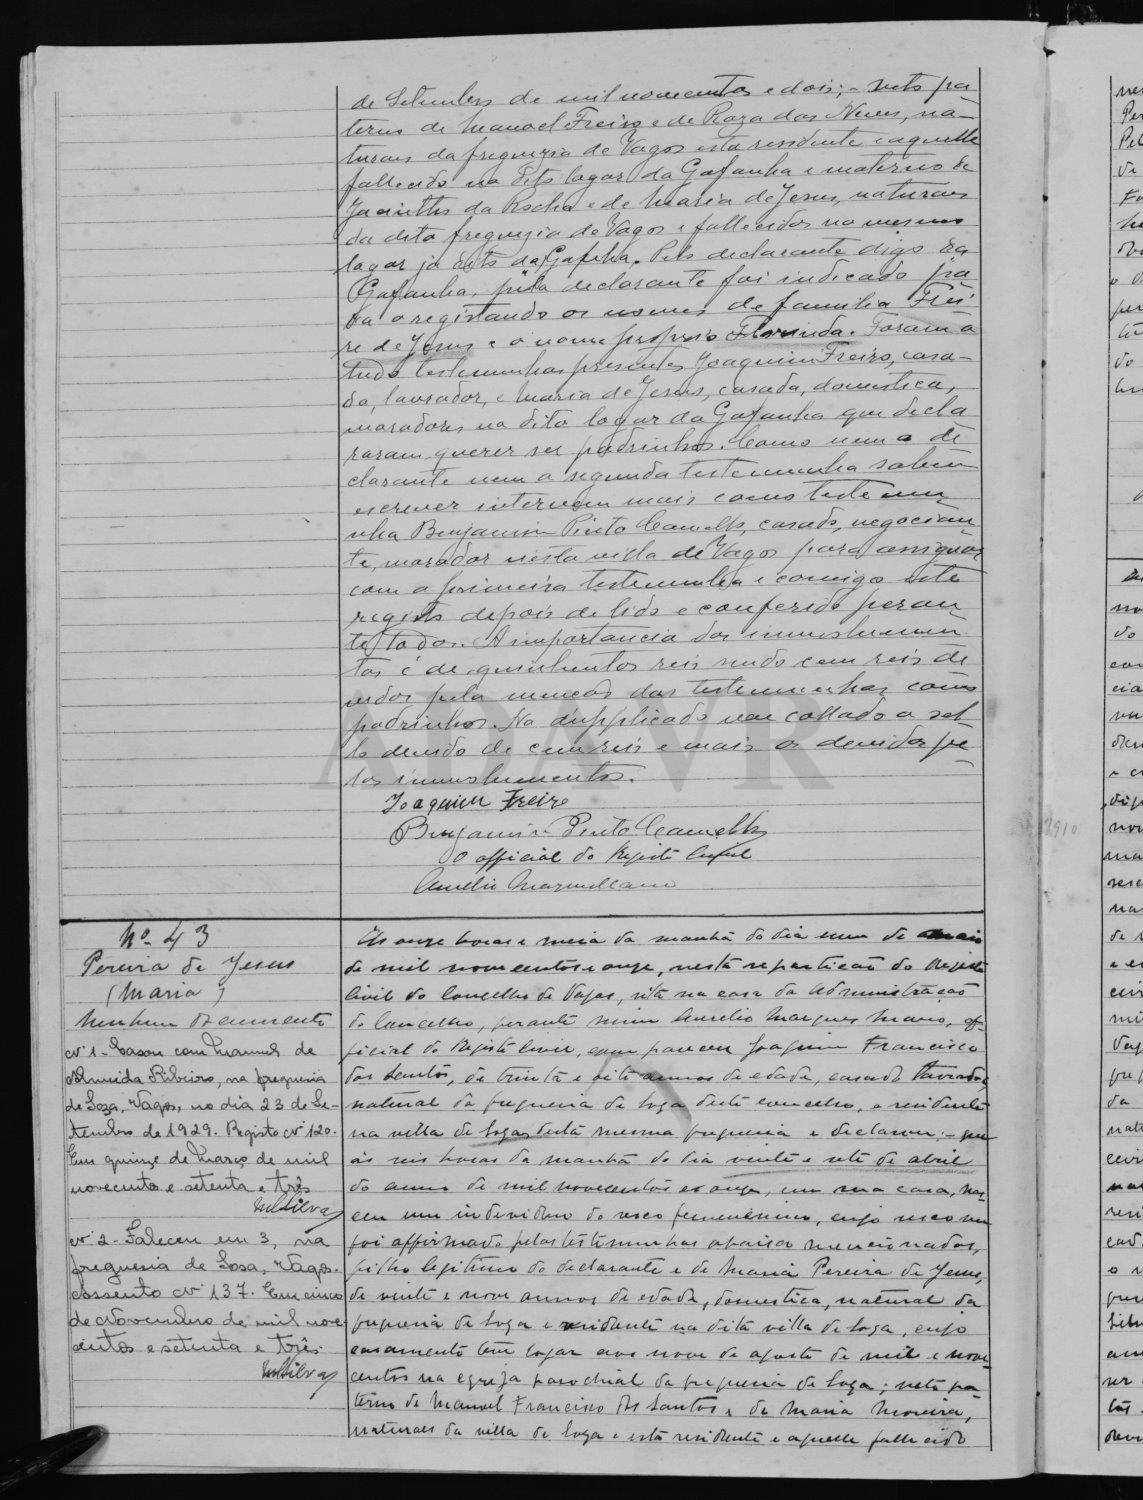 de Setembro de mil novecentos e dois; - neto pa
terno de Manoel Freire e de Roza das Neves, na-
turaes da freguezia de Vagos esta residente e aquelle
fallecido no dito logar da Gafanha e materno de
Jacintho da Rocha e de Maria de Jesus, naturaes
da dita freguezia de Vagos e fallecidos no mesmo
logar já dito da Gafnha. Pelo declarante digo da
Gafanha, pela declarante foi indicado pa
ra o registando os nomes de familia Frei
re de Jesus e o nome proprio Florinda. Foram a
tudo testemunhas presentes Joaquim Freire, casa-
do, lavrador, e Maria de Jesus, casada, domestica,
moradores no dito logar da Gafanha que decla
raram querer ser padrinhos. Como nem a de
clarante nem a segunda testemunha sabem
escrever intervem mais como testemu
nha Benjamim Pinto Camello, casado, negocian
te, morador nesta villa de Vagos para assignar
com a primeira testemunha e comigo este
registo depois de lido e conferido peran
te todos. A importancia dos
tos é de quinhentos reis sendo cem reis de
vidos pela menção das testemunhas como
padrinhos. No duplicado vae collado o sel
lo devido de cem reis e mais os devidos pe
los
Joaquim Freire
Benjamim Pinto Camello
O official do Registo Civil
Aurelio
Nº 43
Pereira de Jesus
(Maria)
Nenhum documento
Nº 1 - Casou com Manuel de
Almeida Ribeiro, na freguesia
de Soza, Vagos, no dia 23 de Se-
tembro de 1929. Registo Nº 120.
Em quinze de Março de mil
novecentos e setenta e três
MSilva
Nº 2 - Faleceu em 3, na
freguesia de Sosa, Vagos.
Assento Nº 137. Em cinco
de Novembro de mil nove
centos e setenta e três.
MSilva
Ás onze horas e meia da manhã do dia um de maio
de mil novecentos e onze, nesta repartição do Registo
Civil do Concelho de Vagos, sita na casa da Administração
do Concelho, perante mim Aurelio Marques Mano, of-
ficial do Registo Civil, compareceu Joaquim Francisco
dos Santos, de trinta e oito annos de edade, casado lavrador
natural da freguesia de Soza deste concelho, e residente
na villa de Soza desta mesma freguesia e declarou: - que
ás seis horas da manhã do dia vinte e sete de abril
do anno de mil novecentos e onze, em sua casa, nas
ceu um individuo do sexo femenino, cujo sexo me
foi affirmado pelas testemunhas abaixo mencionadas,
filho legitimo do declarante e de Maria Pereira de Jesus,
de vinte e nove annos de edade, domestica, natural da
freguesia de Soza e residente na dita villa de Soza, cujo
casamento teve logar aos nove de agosto de mil e nove
centos na egreja parochial da freguesia de Soza; neto pa
terno de Manuel Francisco dos Santos e de Maria Moreira,
naturaes da villa de Soza e esta residente e aquelle fallecido
ADAVR
1910